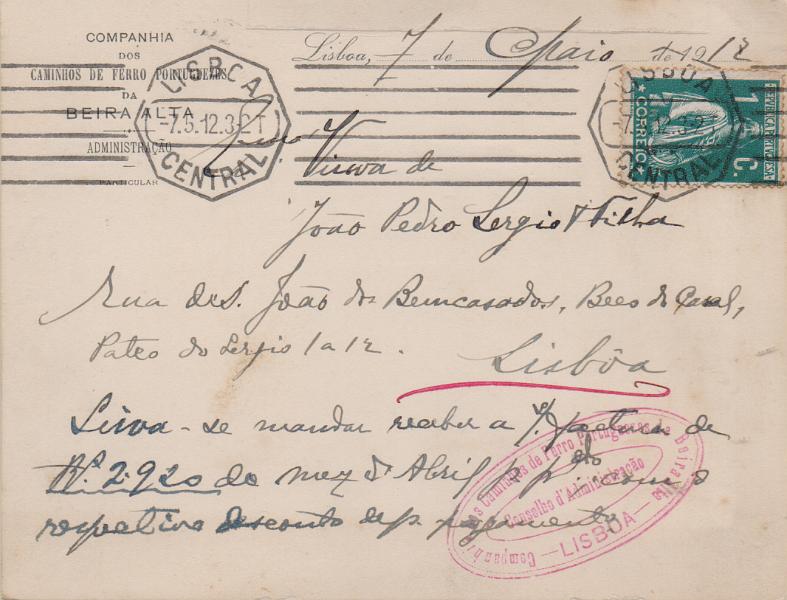 COMPANHIA
DOS
CAMINHOS DE FERRO PORTUGUEZES
DA
BEIRA ALTA
ADMINISTRAÇÃO
PARTICULAR
Lisboa, 7 de Maio de 1912
LISBOA
-7.5.12.3-2T
CENTRAL
LISBOA
CENTRAL
REPUBLICA PORTUGUESA
CORREIO
1 C.
Viuva de
João Pedro Sergio & Filha
Rua de S. João dos Bemcasados,
Pateo do Sergio 1 a 12.
Lisbôa
Sirva-se mandar receber a factura de
Nº 2.920 do mez d'Abril com o
respetivo desconto de pagamento
Companhia dos Caminhos de Ferro Portuguezes da Beira Alta
Conselho d'Administração
—LISBOA—